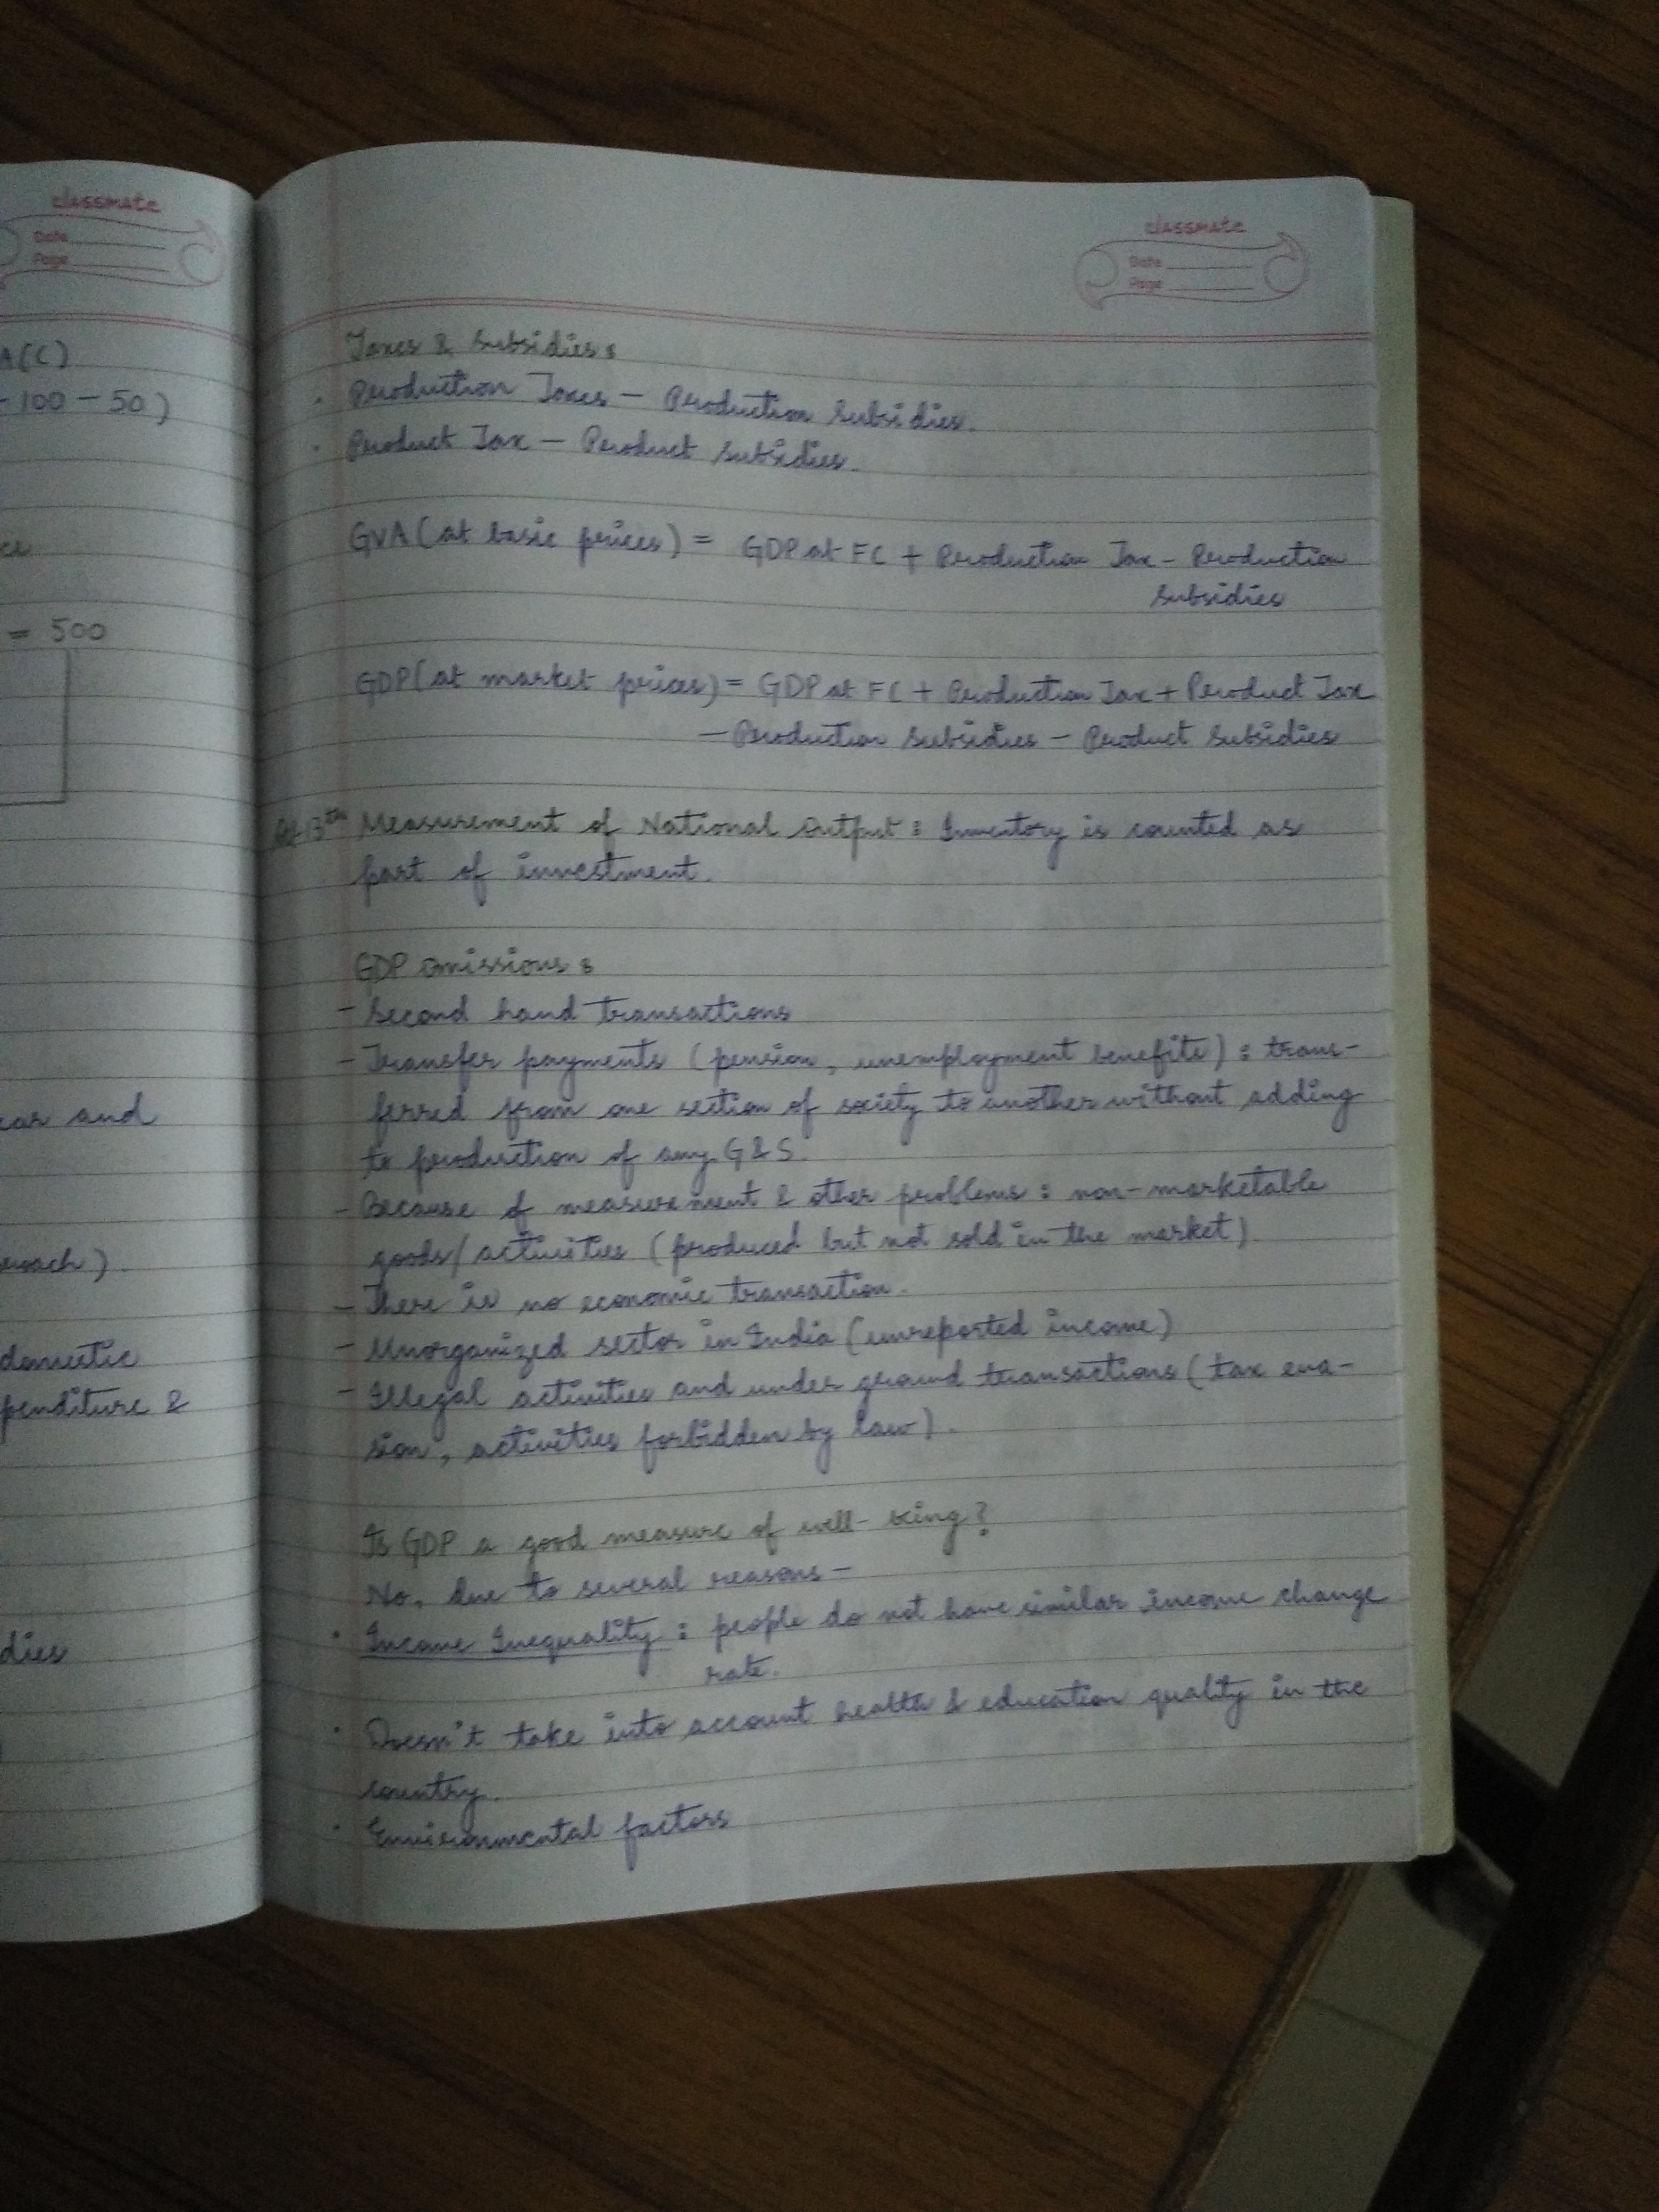 classmate
Date
Page
A(C)
- 100 - 50)
ce
= 500
ear and
roach).
domestic
penditure &
dies
classmate
Date
Page
Taxes & Subsidies:
· Production Taxes - Production Subsidies.
· Product Tax - Product Subsidies.
GVA (at basic prices) = GDP at FC + Production Tax - Production
Subsidies
GDP (at market prices) = GDP at FC + Production Tax + Product Tax
- Production Subsidies - Product Subsidies
13th Measurement of National Output: Inventory is counted as
part of investment.
GDP Omissions:
- Second hand transactions
- Transfer payments (pension, unemployment benefits): trans-
ferred from one section of society to another without adding
to production of any G & S.
- Because of measurement & other problems: non-marketable
goods/activities (produced but not sold in the market).
- There is no economic transaction.
- Unorganized sector in India (unreported income)
- Illegal activities and under ground transactions (tax eva-
sion, activities forbidden by law).
Is GDP a good measure of well-being?
No, due to several reasons-
· Income Inequality: people do not have similar income change
rate.
· Doesn't take into account health & education quality in the
country.
· Environmental factors